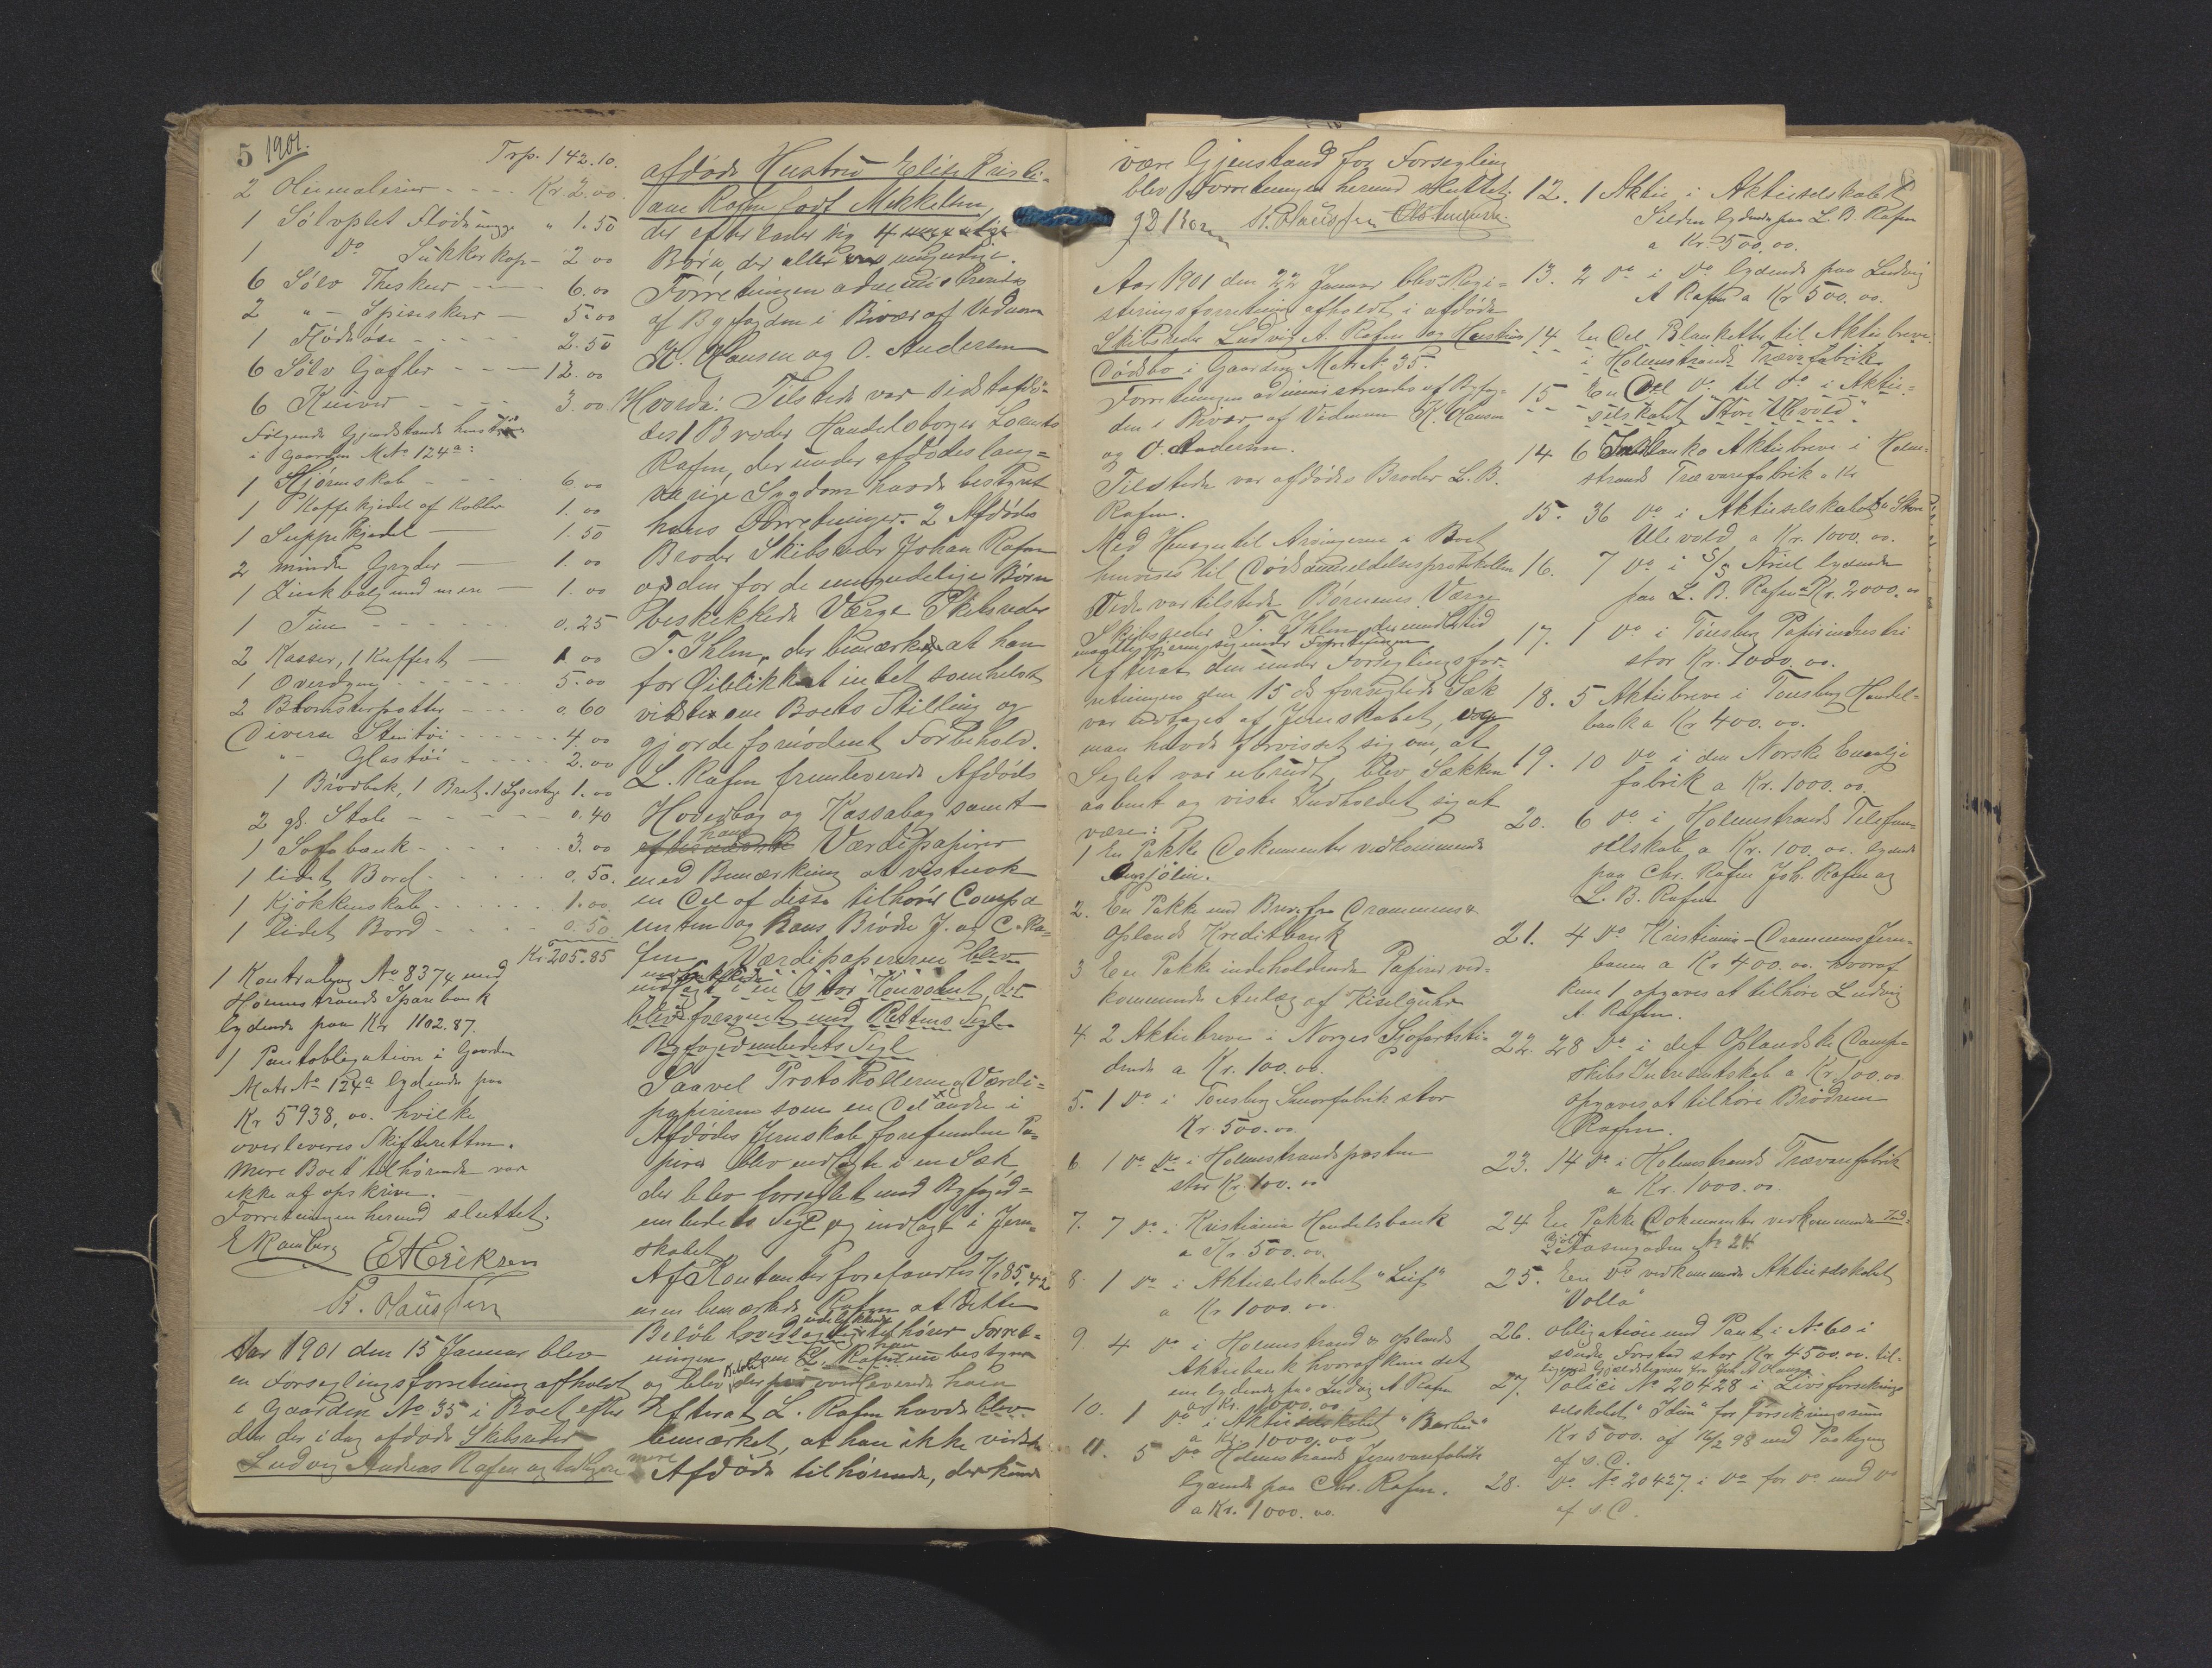 5 1901.
Trp. 142.10.
2 Oliemalerier - - - - Kr. 2.00
1 Sølvplet Flødemugge " 1.50
1 Do Sukkerkop - 2.00
6 Sølv Theskeer - - - 6.00
2 " - Spiseskeer - 5.00
1 Flødeøse - - - - - 2.50
6 Sølv Gafler - - - 12.00
6 Knive - - - - 3.00
Følgende Gjenstande
i Gaarden M No 124a:
1 Hjørneskab - - - - 6.00
1 Kaffekjedel af Kobber 1.00
1 Suppekjedel - 1.50
2 mindre Gryder - 1.00
1 Zinkbalje med mere - 1.00
1 Tine - - - - - - 0.25
2 Kasser, 1 Kuffert - 1.00
1 Overdyne - - - - - - 5.00
2 Blomsterpotter - - - 0.60
Diverse Stentøi - - - - - 4.00
" - Glastøi - - - - 2.00
1 Brødbak, 1 Bret, 1 Lysestage 1.00
2 gl. Stole - - - - - 0.40
1 Sofabænk - - - - - 3.00
1 lidet Bord - - - - - 0.50.
1 Kjøkkenskab - - - - - 1.00
1 lidet Bord - - - - - 0.50
Kr 205.85
1 Kontrabog No 8374 med
Holmestrands Sparebank
lydende paa Kr 1102.87.
1 Pantobligation i Gaarden
Matr No 124a lydende paa
Kr 5938,00. hvilke
overleveres Skifteretten.
Mere Boet tilhørende var
ikke at opskrive. -
Forretningen hermed sluttet.
E Ramberg E A Eriksen
K. Hansen
Aar 1901 den 15 Januar blev
en Forseglingsforretning afholdt
i Gaarden No 35 i Boet efter
den der i dag afdøde Skibsreder
Ludvig Andreas Rafen og tidligere
afdøde Hustru Elise Kristi-
ane Rafen født Mikkelsen,
der efterlader sig 4 umyndige
Børn, der alle umyndige.
Forretningen administreredes
af Byfogden i Bivær af Vidnerne
K. Hansen og O. Andersen
Hvorda: Tilstede var sidstafdø-
des 1 Broder Handelsborger Lorents
Rafen, der under afdødes lang-
varige Sygdom havde bestyret
hans Forretninger. 2 Afdødes
Broder Skibsreder Johan Rafen
og den for de umyndige Børn
beskikkede Værge Skibsreder
T. Ihlen, der bemærkede at han
for Øieblikket intet somhelst
vidste om Boets Stilling og
gjorde fornødent Forbehold.
L. Rafen fremleverede Afdødes
Hovedbog og Kassabog samt
hans Værdipapirer
med Bemærkning at vistnok
en Del af disse tilhører Compa
enten og hans Brødre J. og C. Ra-
fen. Værdipapirerne blev
indlagt i en stor Konvolut, der
blev forseglet med Rettens Segl.
Byfogedembedets Segl
Saavel Protokollerne og Værdi-
papirerne som en Del andre i
Afdødes Jernskab forefundne Pa-
pirer blev indlagte i en Sæk,
der blev forseglet med Byfoged-
embedets Segl og indlagt i Jern-
skabet.
Af Kontanter forefandtes Kr 85.42
men bemærkede Rafen at dette
Beløb tilhører Forret-
ningen som L. Rafen bestyrer
og blev Beløbet overleveret ham
Efterat L. Rafen havde blev
bemærket, at han ikke vidste
mere Afdøde tilhørende, der kunde
være Gjenstand for Forsegling
blev Forretningen hermed sluttet.
K. Hansen
Aar 1901 den 22 Januar blev Regi-
streringsforretning afholdt i afdøde
Skibsreder Ludvig A. Rafen og Hustrus
Dødsbo i Gaarden Matr No 35.
Forretningen administreredes af Byfog-
den i Bivær af Vidnerne K. Hansen
og O. Andersen.
Tilstede var afdødes Broder L. B.
Rafen.
Med Hensyn til Arvingerne i Boet
henvises til Dødsanmeldelsesprotokollen
Videre var tilstede Børnenes Værge
Skibsreder T. Ihlen,
Efterat den under Forseglingsfor-
retningen den 15 ds forseglede Sæk
var udtaget af Jernskabet, og
man havde forvisset sig om, at
Seglet var ubrudt, blev Sækken
aabnet og viste Indholdet sig at
være:
1 En Pakke Dokumenter vedkommende
2. En Pakke med Breve fra Drammens &
Oplands Kreditbank
3 En Pakke indeholdende Papirer ved-
kommende Anlæg af Kiselguhr
4. 2 Aktiebreve i Norges Sjøfartsti-
dende a Kr. 100.00.
5. 1 Do i Tønsberg Smørfabrik stor
Kr. 500.00
6. 1 Do Do i Holmestrandsposten
stor Kr. 100.00
7. 7 Do i Kristiania Handelsbank
a Kr 500.00.
8. 1 Do i Aktieselskabet "Leif"
a Kr 1000.00
9. 4 Do i Holmestrand & Oplands
Aktiebank hvoraf kun det
ene lydende paa Ludvig A Rafen
a Kr. 1000.00
10. 1 Do i Aktieselskabet
a Kr. 1000.00
11. 5 Do Holmestrands Jernvarefabrik
lydende paa Chr. Rafen.
a Kr. 1000.00.
12. 1 Aktie i Aktieselskabet
Silden lydende paa L. B. Rafen
a Kr. 500.00.
13. 2 Do i Do lydende paa Ludvig
A Rafen a Kr 500.00.
14 En Del Blanketter til Aktiebreve
i Holmestrands Trævarefabrik.
15 En Del Do til Do i Aktie-
selskabet "Store Ulevold".
14. 6 Aktiebreve i Holme-
strands Trævarefabrik a Kr
15. 36 Do i Aktieselskabet Store
Ulevold a Kr. 1000.00.
16. 7 Do i S/S Ariel lydende
paa L. B. Rafen a Kr. 2000.00
17. 1 Do i Tønsberg Papirindustri
stor Kr. 1000.00.
18. 5 Aktiebreve i Tønsberg Handels-
bank a Kr 400.00.
19. 10 Do i den Norske Emalje
fabrik a Kr. 1000.00.
20. 6 Do i Holmestrands Telefon-
selskab a Kr. 100.00. lydende
paa Chr. Rafen Joh. Rafen og
L. B. Rafen
21. 4 Do Kristiania-Drammens Jern-
banen a Kr 400.00. hvoraf
kun 1 opgaves at tilhøre Ludvig
A. Rafen.
22. 28 Do i det Oplandske Damp-
skibs Interesentskab a Kr. 100.00
opgaves at tilhøre Brødrene
Rafen.
23. 14 Do i Holmestrands Trævarefabrik
a Kr. 1000.00.
24 En Pakke Dokumenter vedkommende
Aasengaden No 24.
25. En Do vedkommende Aktieselskabet
"Volla"
26. Obligation med Pant i No 60 i
søndre Forstad stor Kr. 4500.00. til-
27. Polici No 20428 i Livsforsikrings-
selskabet "Idun" for Forsikringssum
Kr 5000. af 16/2 98 med Paategning
af s. D.
28. Do No 20427 i Do for Do med Do
af s D.